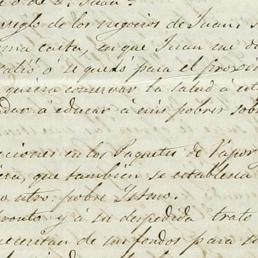 de D. Juan.
arreglo de los negocios de Juan, s
una carta, en que Juan me d
salió o se quedó para el proxim
quiera conservar la salud a est
dar á educar á mis pobres sob
cciones en los Paquetes de Vapor
era, que tambien se establesca
o otro: pobre Istmo.
ronto y á su despedida trate
necesitan de mis fondos para